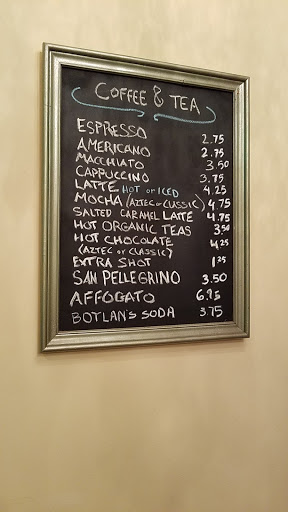 COFFEE & TEA
ESPRESSO 2.75
AMERICANO 2.75
MACCHIATO 3.50
CAPPUCCINO 3.75
LATTE HOT or ICED 4.25
MOCHA (AZTEC or CLASSIC) 4.75
SALTED CARAMEL LATTE 4.75
HOT ORGANIC TEAS 3.50
HOT CHOCOLATE 4.25
(AZTEC or CLASSIC)
EXTRA SHOT 1.25
SAN PELLEGRINO 3.50
AFFOGATO
BOTLAN'S SODA 3.75